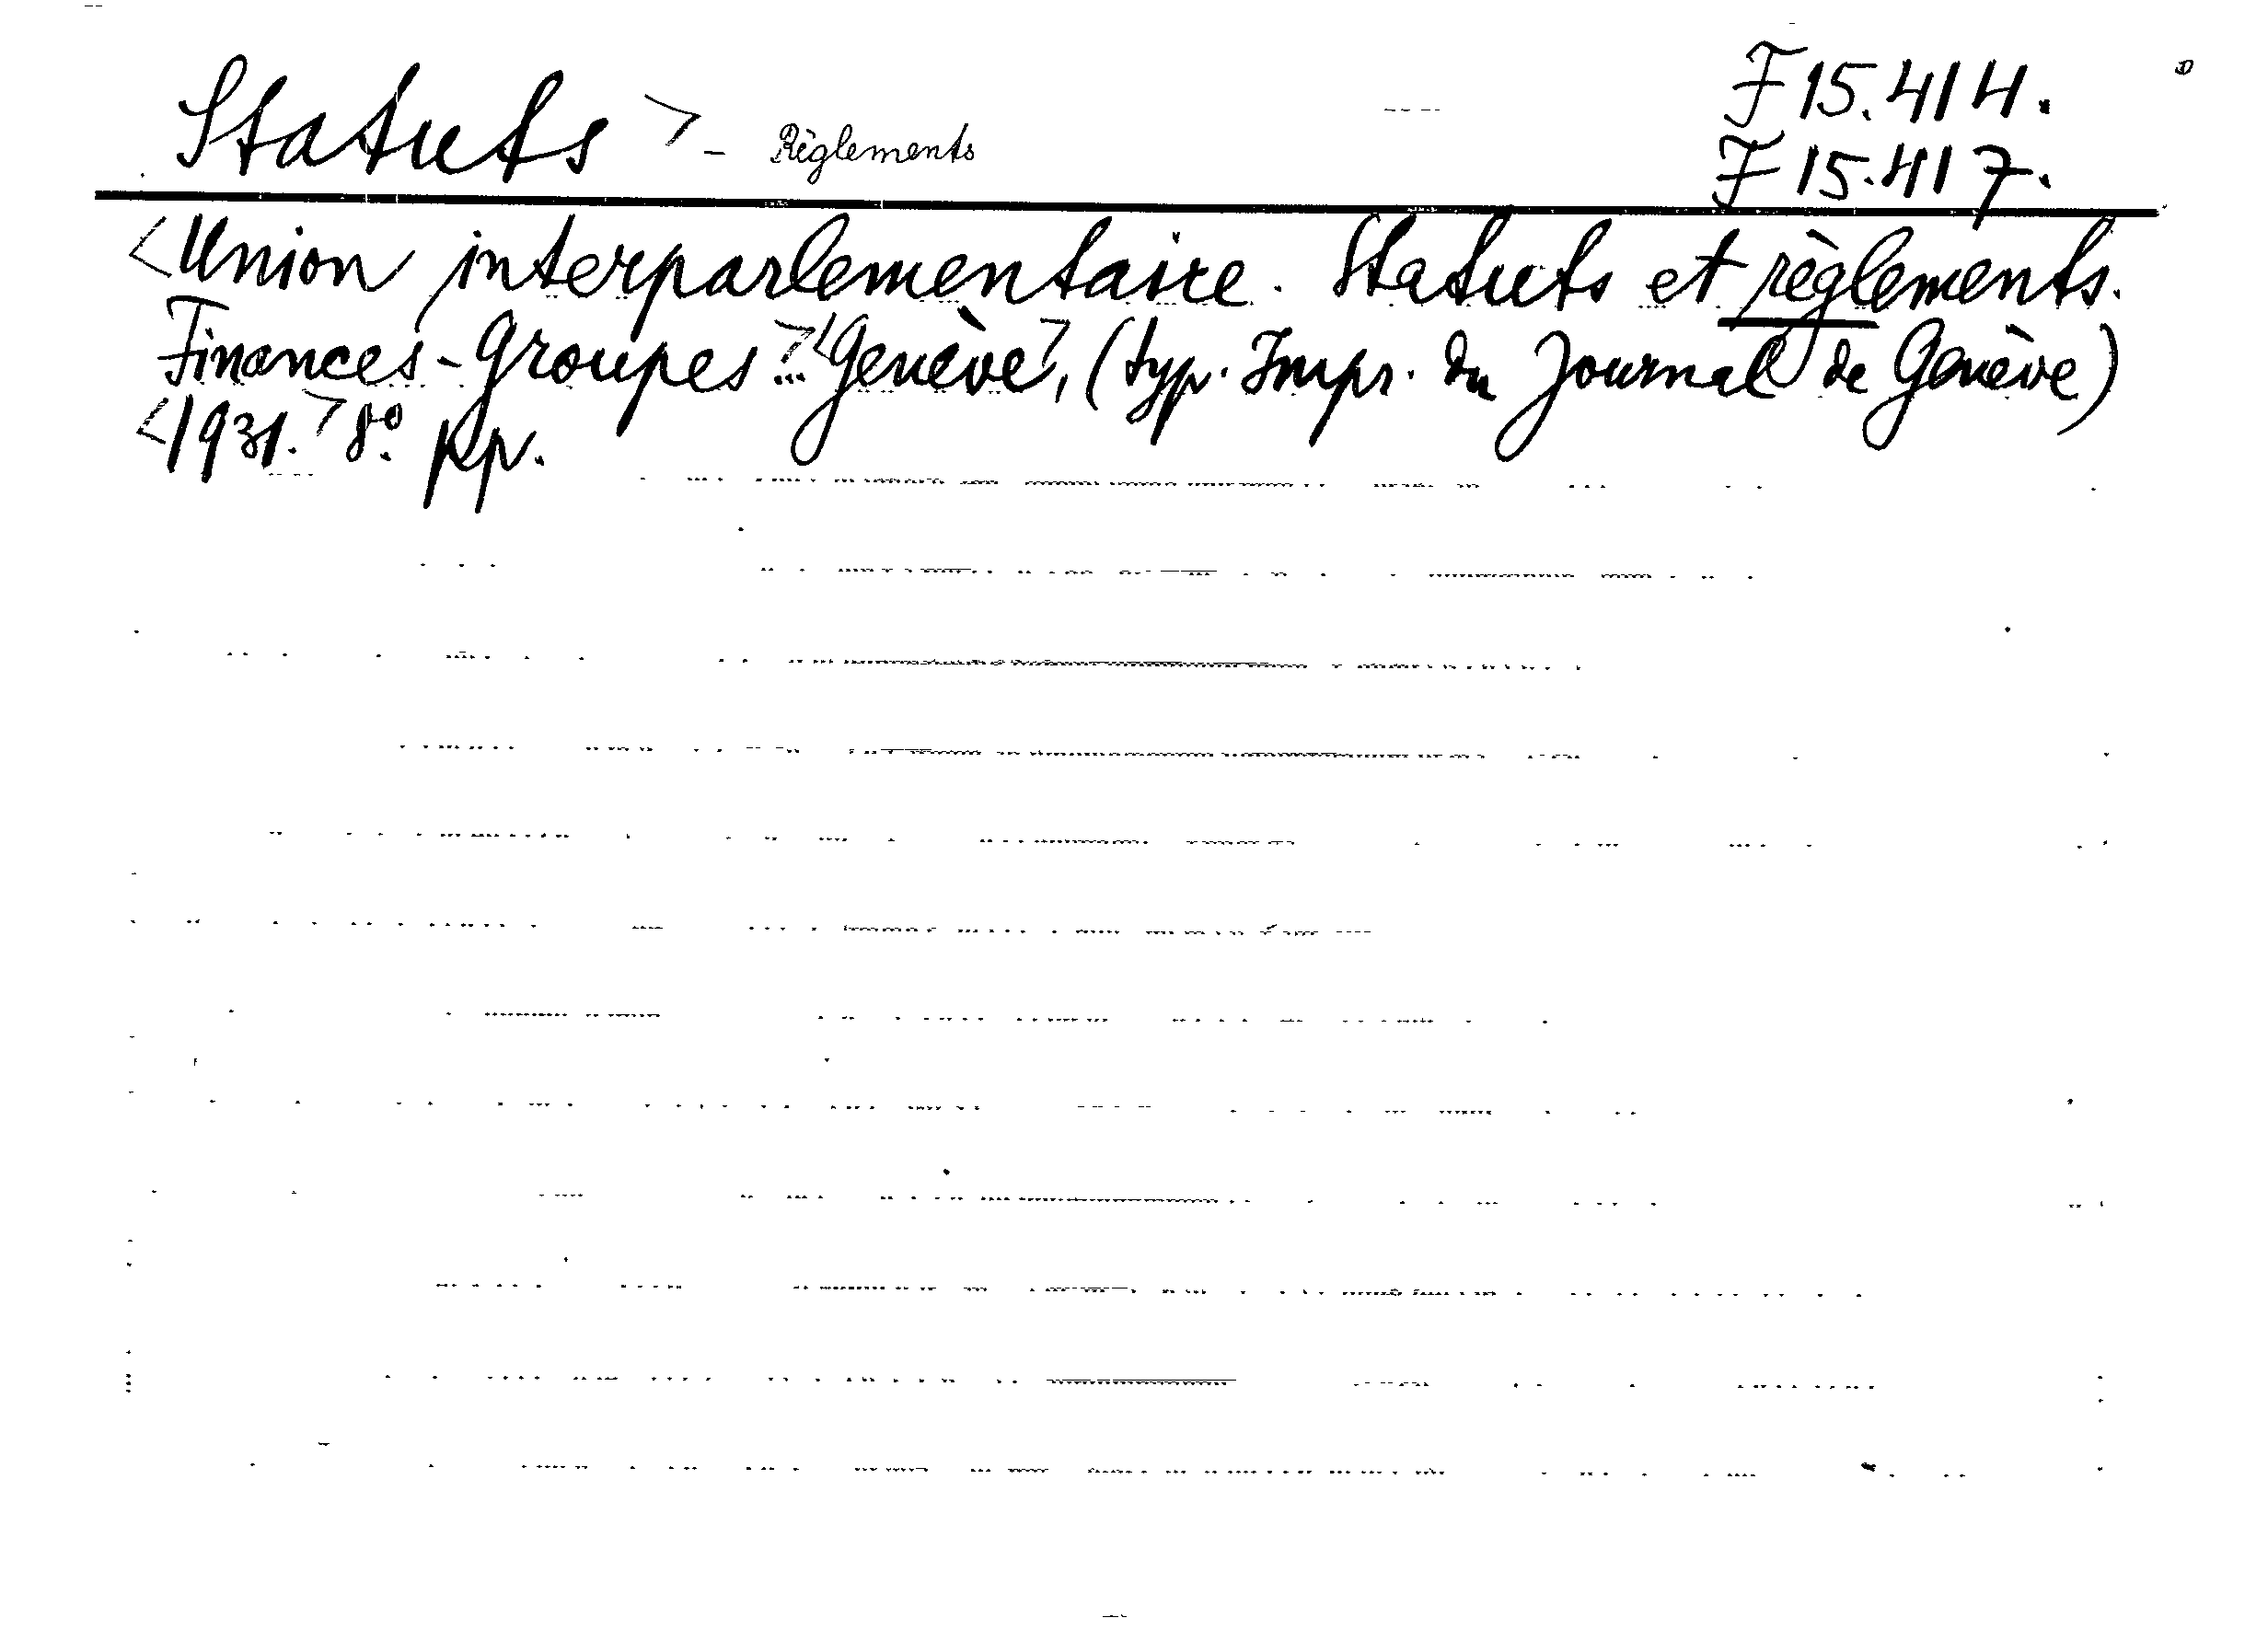 Statuts > - Règlements
F 15.414.
F 15.417.
<Union interparlementaire. Statuts et règlements.
Finances-Groupes> <Genève>, (typ. Impr. du Journal de Genève)
<1931.> 8º. pp.